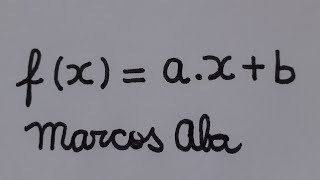 f(x) = a.x+b
Marcos Aba